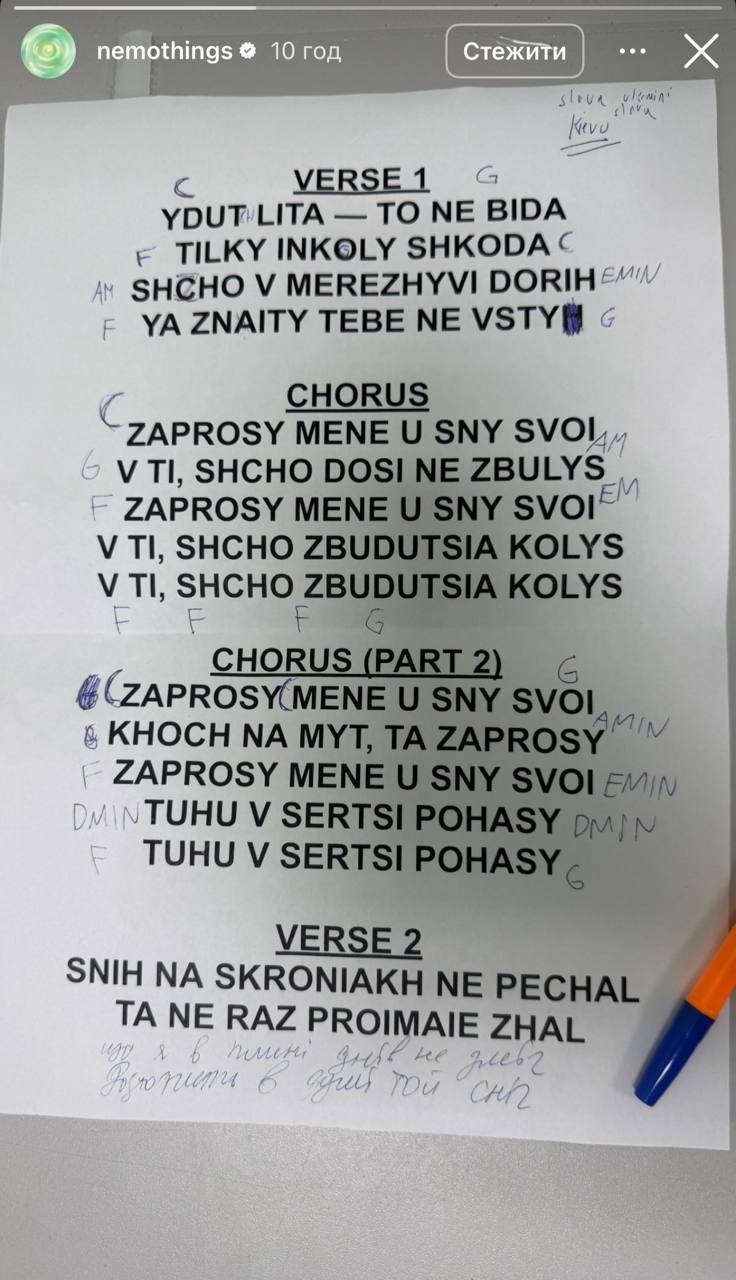 nemothings 10 год Стежити
slava ukraini
slava
Kievu
C G
VERSE 1
YDUT LITA — TO NE BIDA
F TILKY INKOLY SHKODA C
AM SHCHO V MEREZHYVI DORIH EMIN
F YA ZNAITY TEBE NE VSTYH G
CHORUS
C ZAPROSY MENE U SNY SVOI AM
G V TI, SHCHO DOSI NE ZBULYS
F ZAPROSY MENE U SNY SVOI EM
V TI, SHCHO ZBUDUTSIA KOLYS
V TI, SHCHO ZBUDUTSIA KOLYS
F F F G
CHORUS (PART 2) G
C ZAPROSY MENE U SNY SVOI
KHOCH NA MYT, TA ZAPROSY AMIN
F ZAPROSY MENE U SNY SVOI EMIN
DMIN TUHU V SERTSI POHASY DMIN
F TUHU V SERTSI POHASY G
VERSE 2
SNIH NA SKRONIAKH NE PECHAL
TA NE RAZ PROIMAIE ZHAL
що я в плині днів не зміг
в душі той сніг